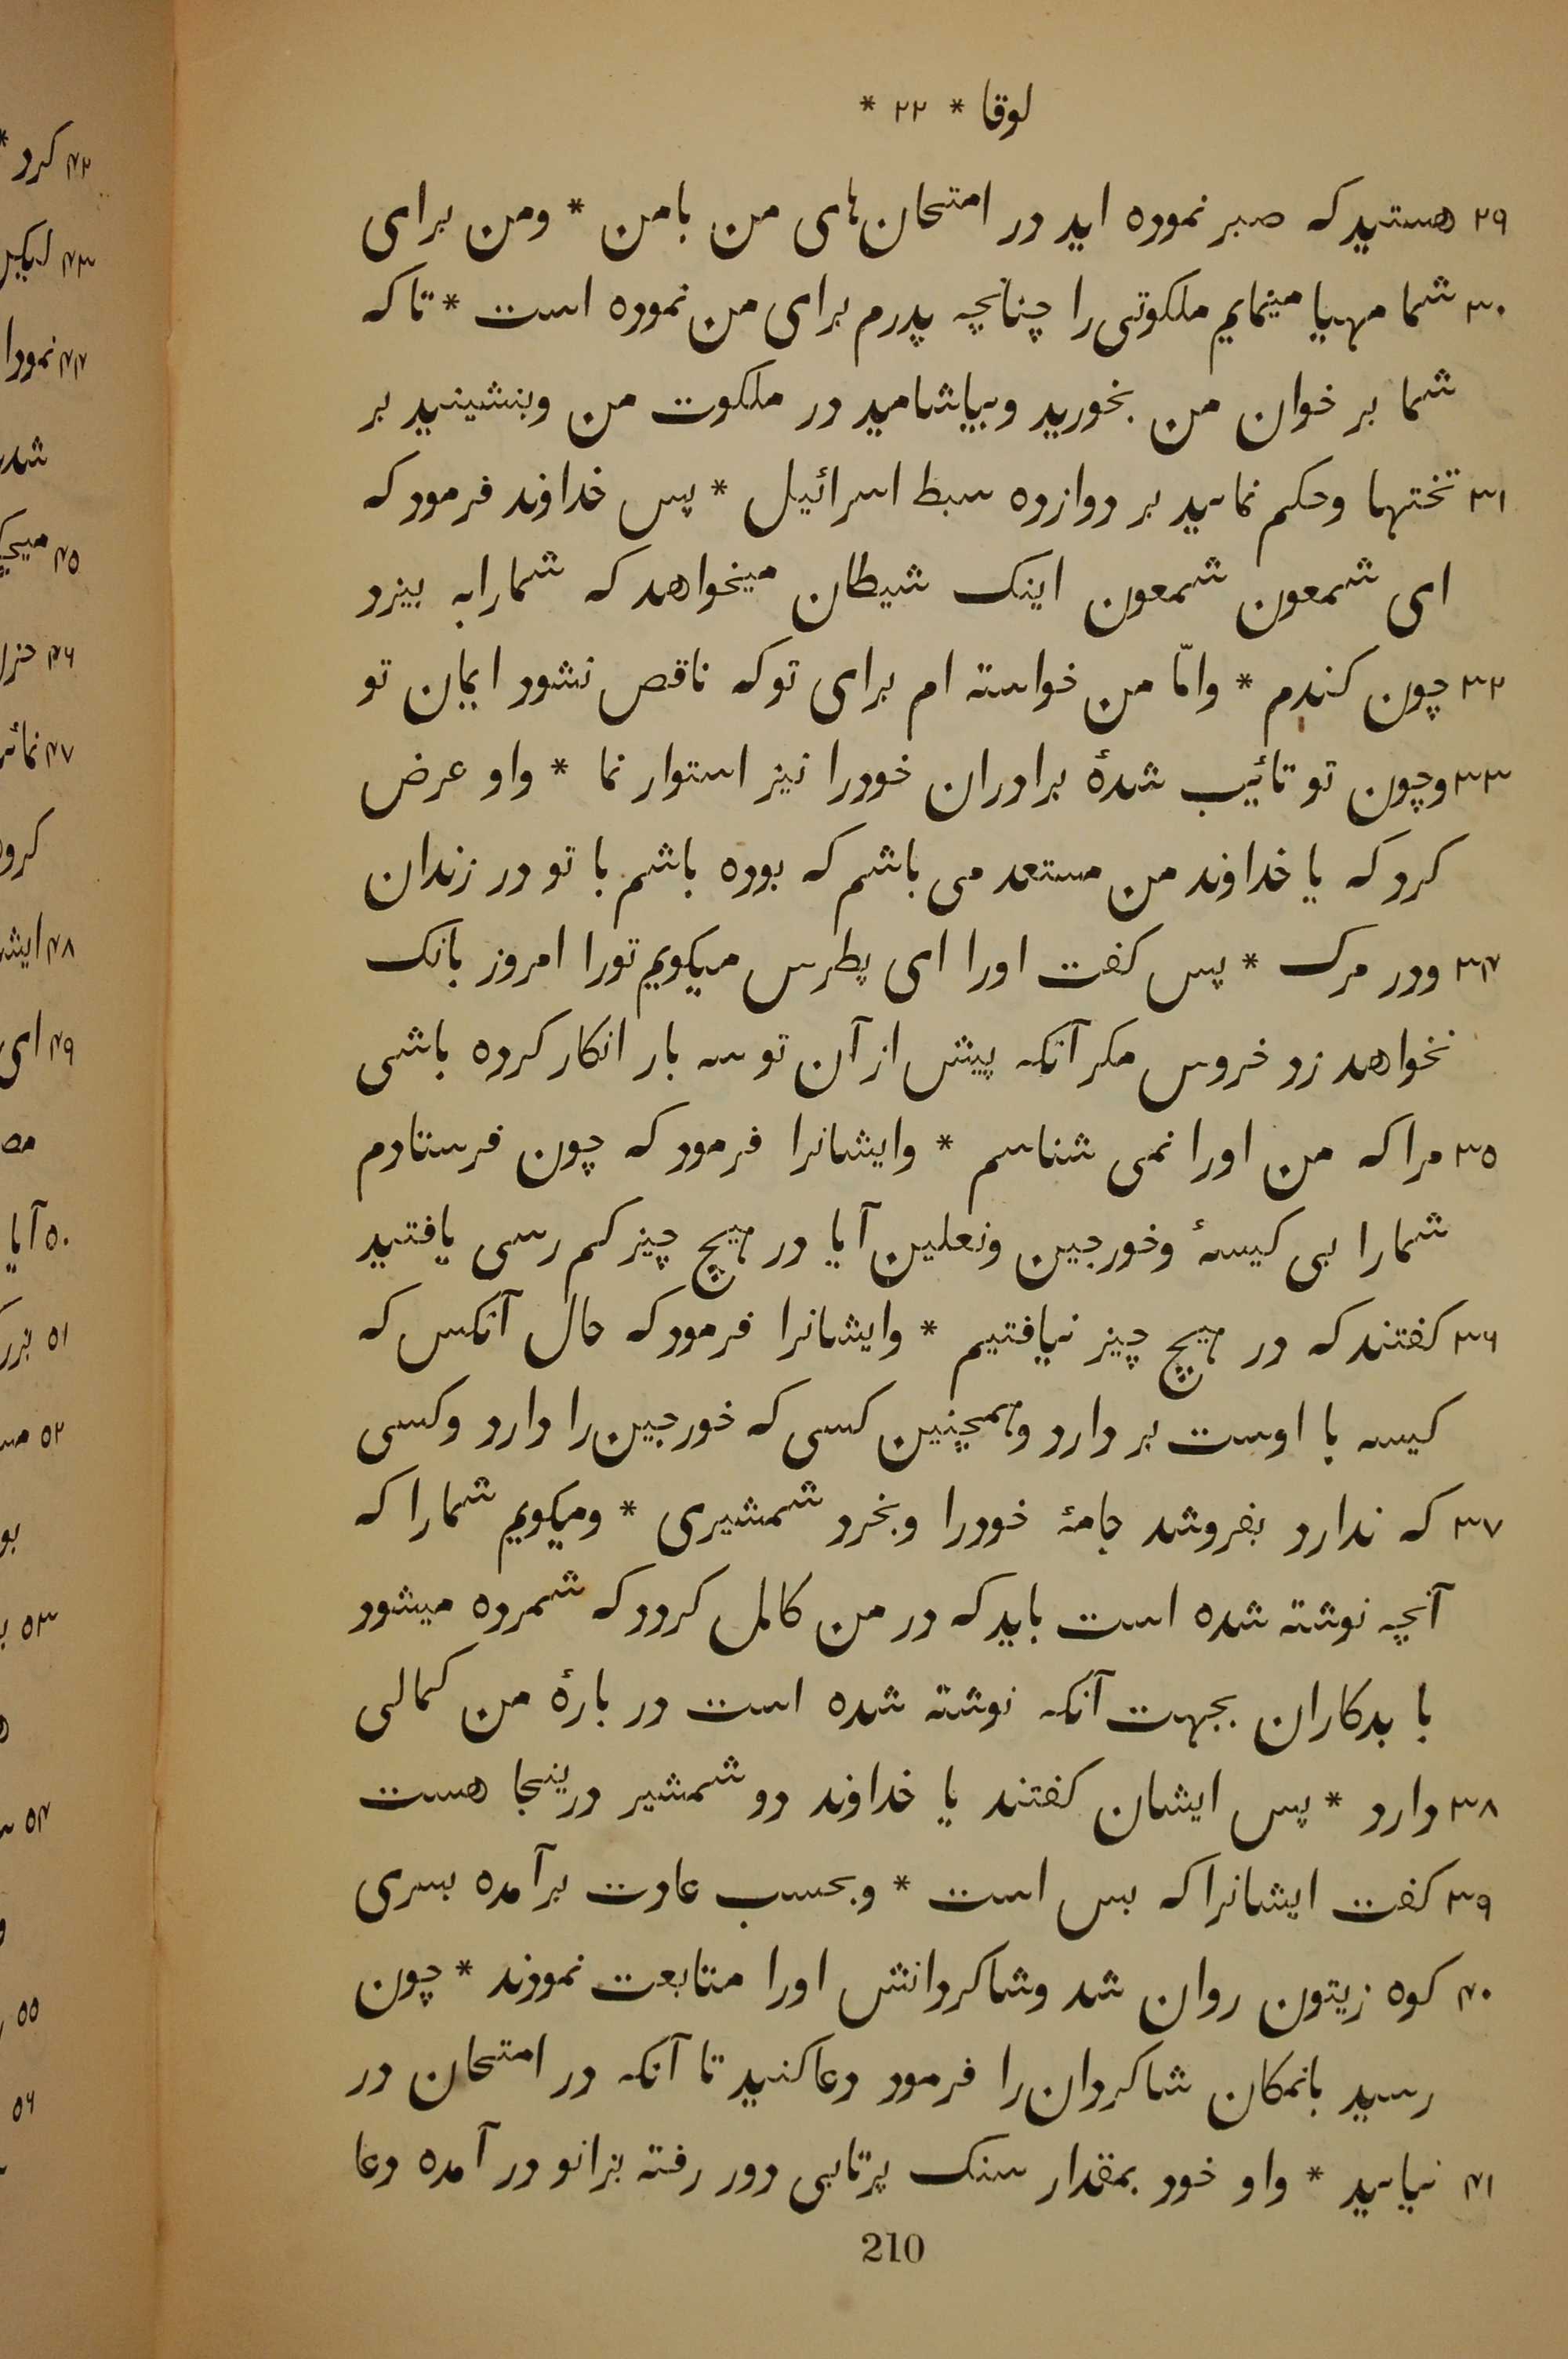 لوقا * ۲۲ *
۲۹ هستید که صبر نموده اید در امتحان‌های من با من * ومن برای
۳۰ شما مهیا مینمایم ملکوتی را چنانچه پدرم برای من نموده است * تا که
شما بر خوان من بخورید وبیاشامید در ملکوت من وبنشینید بر
۳۱ تختها وحکم نمایید بر دوازده سبط اسرائیل * پس خداوند فرمود که
ای شمعون شمعون اینک شیطان میخواهد که شمارا به بیزد
۳۲ چون کندم * وامّا من خواسته ام برای تو که ناقص نشود ایمان تو
۳۳ وچون تو تائیب شدهٔ برادران خودرا نیز استوار نما * واو عرض
کرد که یا خداوند من مستعد می باشم که بوده باشم با تو در زندان
۳۴ ودر مرک * پس کفت اورا ای پطرس میکویم تورا امروز بانک
نخواهد زد خروس مکر آنکه پیش از آن تو سه بار انکار کرده باشی
۳۵ مرا که من اورا نمی شناسم * وایشانرا فرمود که چون فرستادم
شمارا بی کیسهٔ وخورجین ونعلین آیا در هیچ چیز کم رسی یافتید
۳۶ کفتند که در هیچ چیز نیافتیم * وایشانرا فرمود که حال آنکس که
کیسه با اوست بر دارد وهمچنین کسی که خورجین را دارد وکسی
۳۷ که ندارد بفروشد جامهٔ خودرا وبخرد شمشیری * ومیکویم شمارا که
آنچه نوشته شده است باید که در من کامل کردد که شمرده میشود
با بدکاران بجهت آنکه نوشته شده است در بارهٔ من کمالی
۳۸ دارد * پس ایشان کفتند یا خداوند دو شمشیر درینجا هست
۳۹ کفت ایشانرا که بس است * وبحسب عادت برآمده بسری
۴۰ کوه زیتون روان شد وشاکردانش اورا متابعت نمودند * چون
رسید بانمکان شاکردان را فرمود دعا کنید تا آنکه در امتحان در
۴۱ نیایید * واو خود بمقدار سنک پرتابی دور رفته بزانو در آمده دعا
210
۴۲ کرد *
۴۳
۴۴
۴۵
۴۶
۴۷
۴۸
۴۹ ای
۵۰ آیا
۵۱
۵۲
۵۳
۵۴
۵۵
۵۶